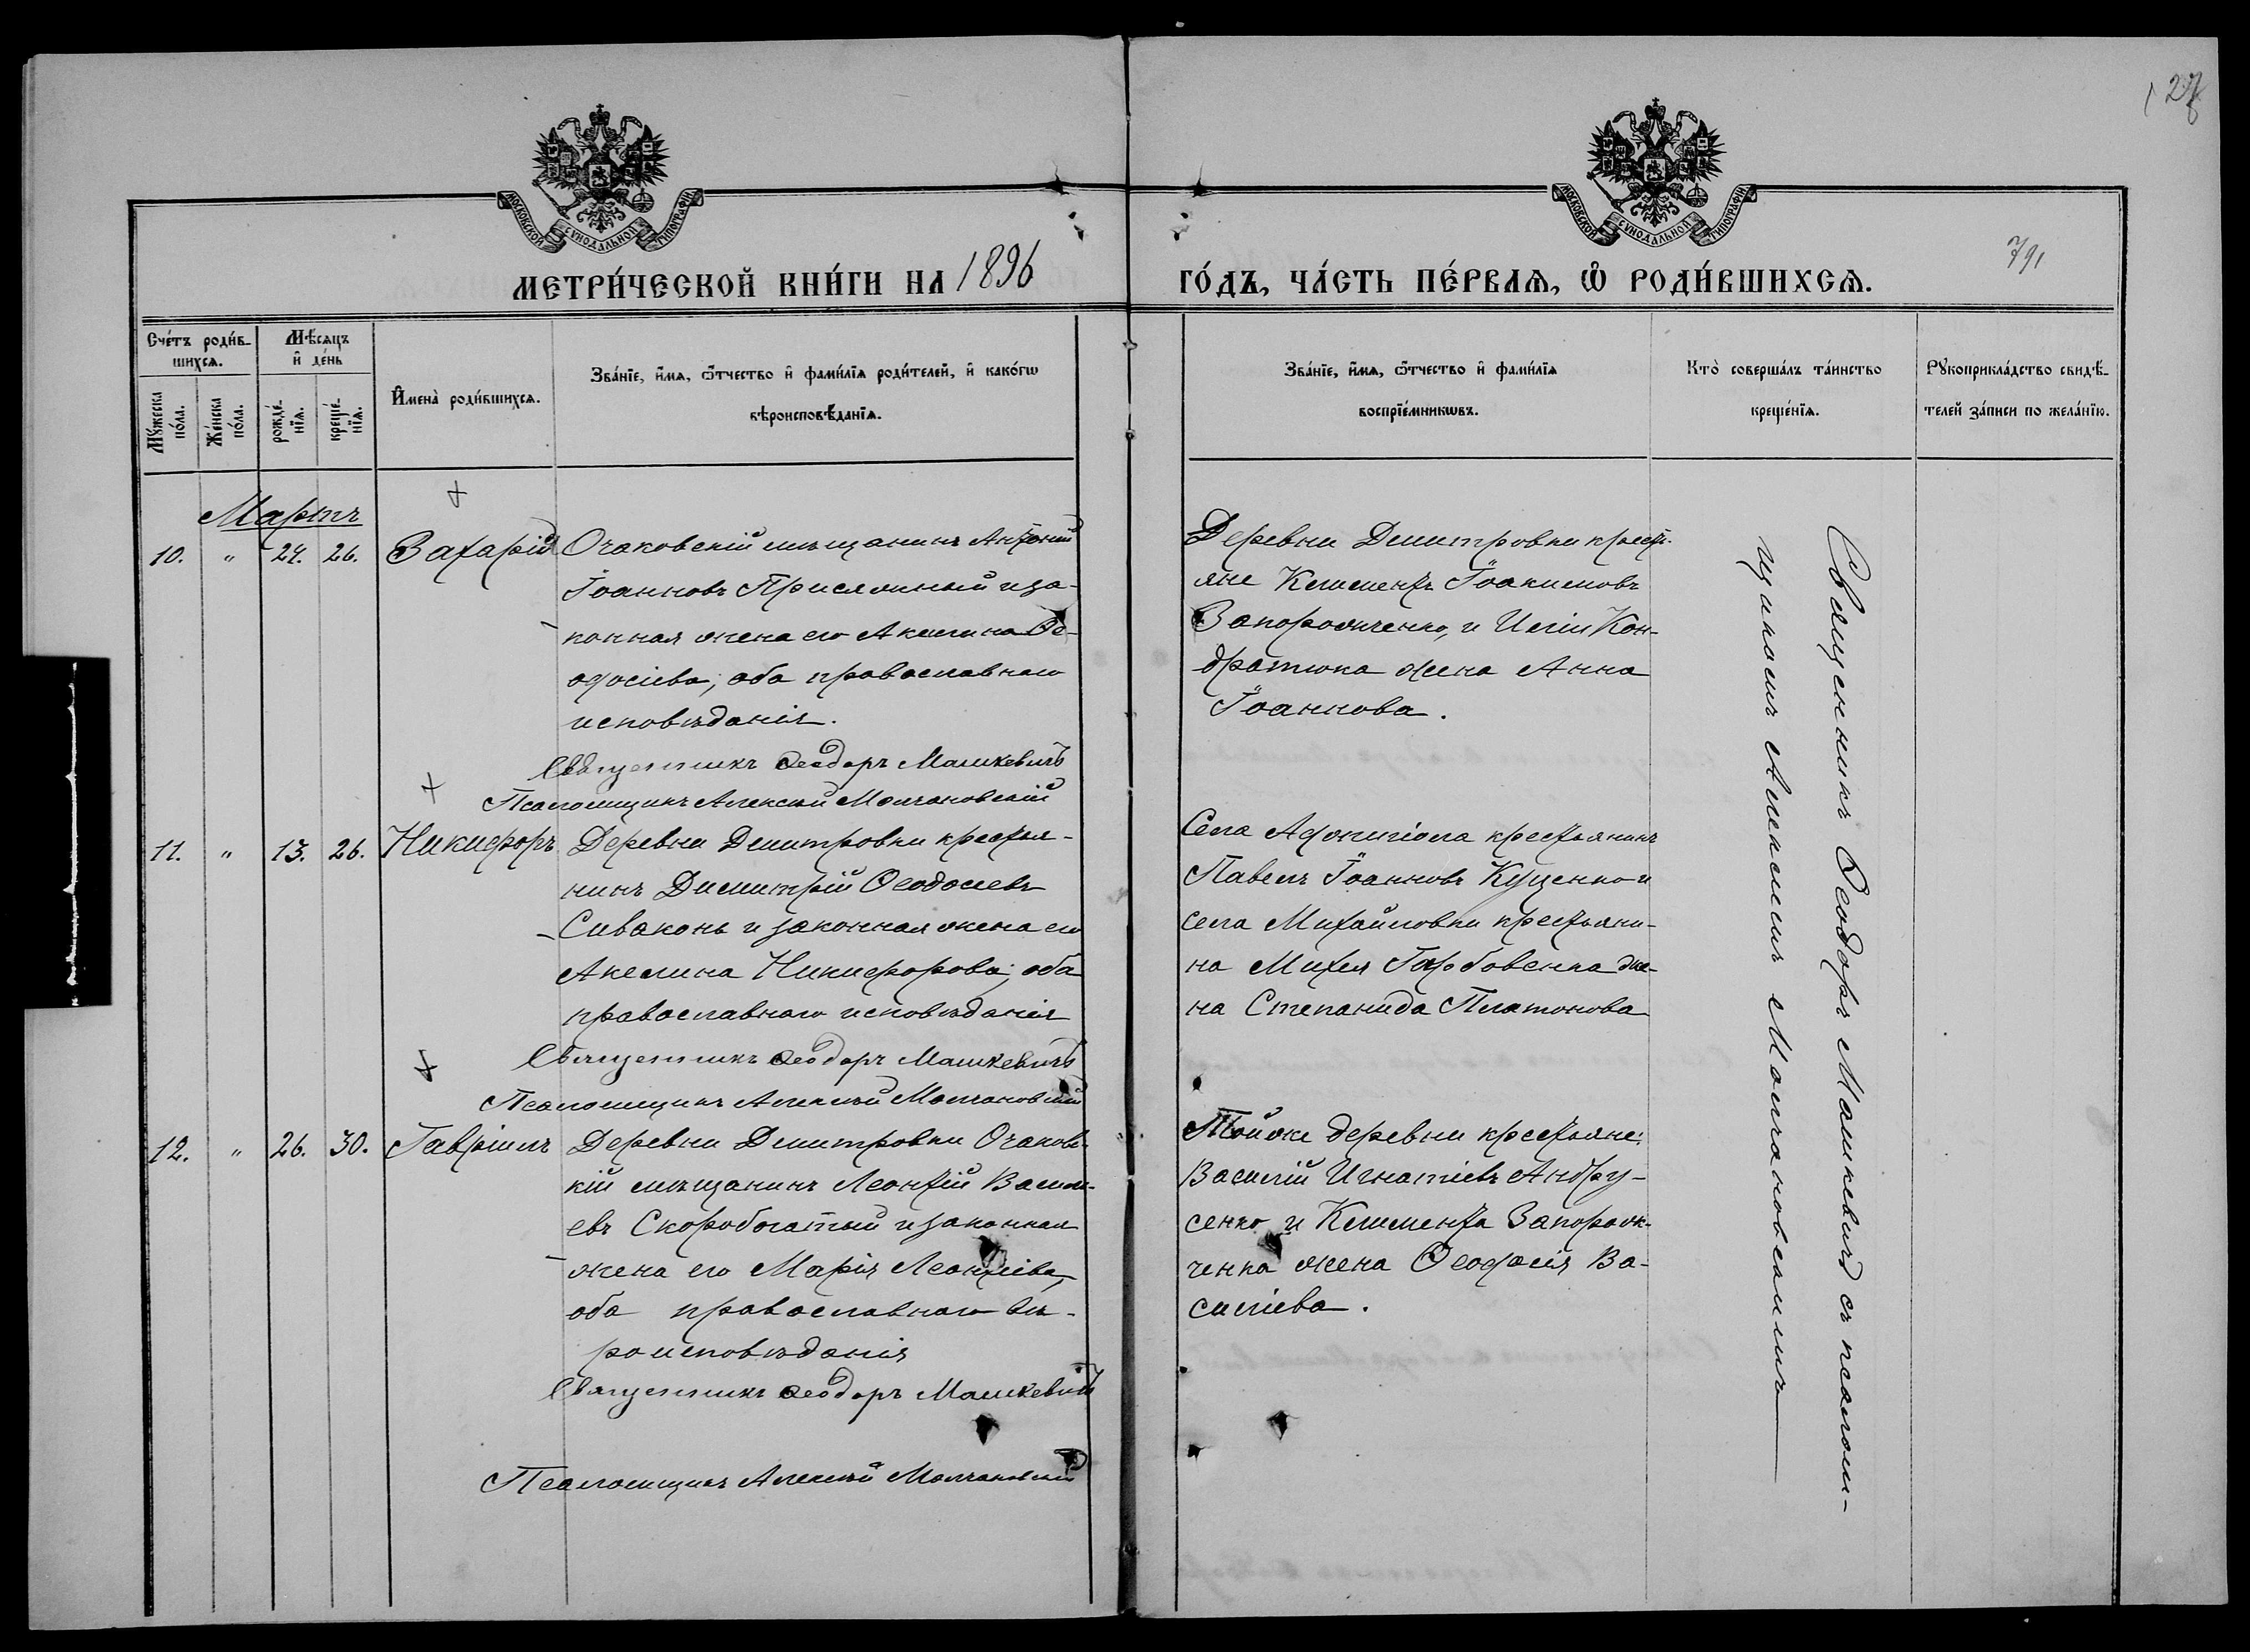 127
МОСКОВСКОЙ СѴНОДАЛЬНОЙ ТИПОГРАФІИ
МОСКОВСКОЙ СѴНОДАЛЬНОЙ ТИПОГРАФІИ
791
МЕТРИ́ЧЕСКОЙ КНИ́ГИ НА 1896 ГО́ДЪ, ЧА́СТЬ ПЕ́РВАѦ, Ѡ҆ РОДИ́ВШИХСѦ.
Сче́тъ роди́в-
шихсѧ.
Мѣ́сѧцъ
и҆ де́нь
Мꙋ́жеска
по́ла.
Же́нска
по́ла.
рожде́-
нїѧ.
креще́-
нїѧ.
И҆мена̀ роди́вшихсѧ.
Зва́нїе, и҆́мѧ, ѻ҆́тчество и҆ фами́лїѧ роди́телей, и҆ како́гѡ
вѣроисповѣ́данїѧ.
Зва́нїе, и҆́мѧ, ѻ҆́тчество и҆ фами́лїѧ
воспрїе́мникѡвъ.
Кто̀ соверша́лъ та́инство
креще́нїѧ.
Рꙋкоприкла́дство свидѣ́-
телей за́писи по жела́нїю.
Мартъ
10. " 24. 26. Захарій
Очаковскій мѣщанинъ Антоній
Іоанновъ Присяжный и за-
конная жена его Акилина Ѳе-
одосіева, оба православнаго
исповѣданія.
Священникъ Ѳеодоръ Машкевичъ
Псаломщикъ Алексѣй Молчановскій
Деревни Димитровки крестъ-
яне Климентъ Іоакимовъ
Запорожченко, и Иліи Кон-
дратюка жена Анна
Іоаннова.
11. " 13. 26. Никифоръ
Деревни Димитровки крестья-
нинъ Димитрій Ѳеодосіевъ
Сиваконь и законная жена его
Акилина Никифорова, оба
православнаго исповѣданія
Священникъ Ѳеодоръ Машкевичъ
Псаломщикъ Алексѣй Молчановскій
Села Аджигіола крестьянинъ
Павелъ Іоанновъ Куценко и
села Михайловки крестьяни-
на Михея Горбовенка же-
на Степанида Платонова
12. " 26. 30. Гавріилъ
Деревни Димитровки Очаковс-
кій мѣщанинъ Леонтій Васили-
евъ Скоробогатый и законная
жена его Марія Леонтіева,
оба православнаго вѣ-
роисповѣданія
Священникъ Ѳеодоръ Машкевичъ
Псаломщикъ Алексѣй Молчановскій
Той же деревни крестьяне:
Василій Игнатіевъ Андру-
сенко и Климента Запорож-
ченка жена Ѳеодосія Ва-
силіева.
Священникъ Ѳеодоръ Машкевичъ съ псалом-
щикомъ Алексѣемъ Молчановскимъ